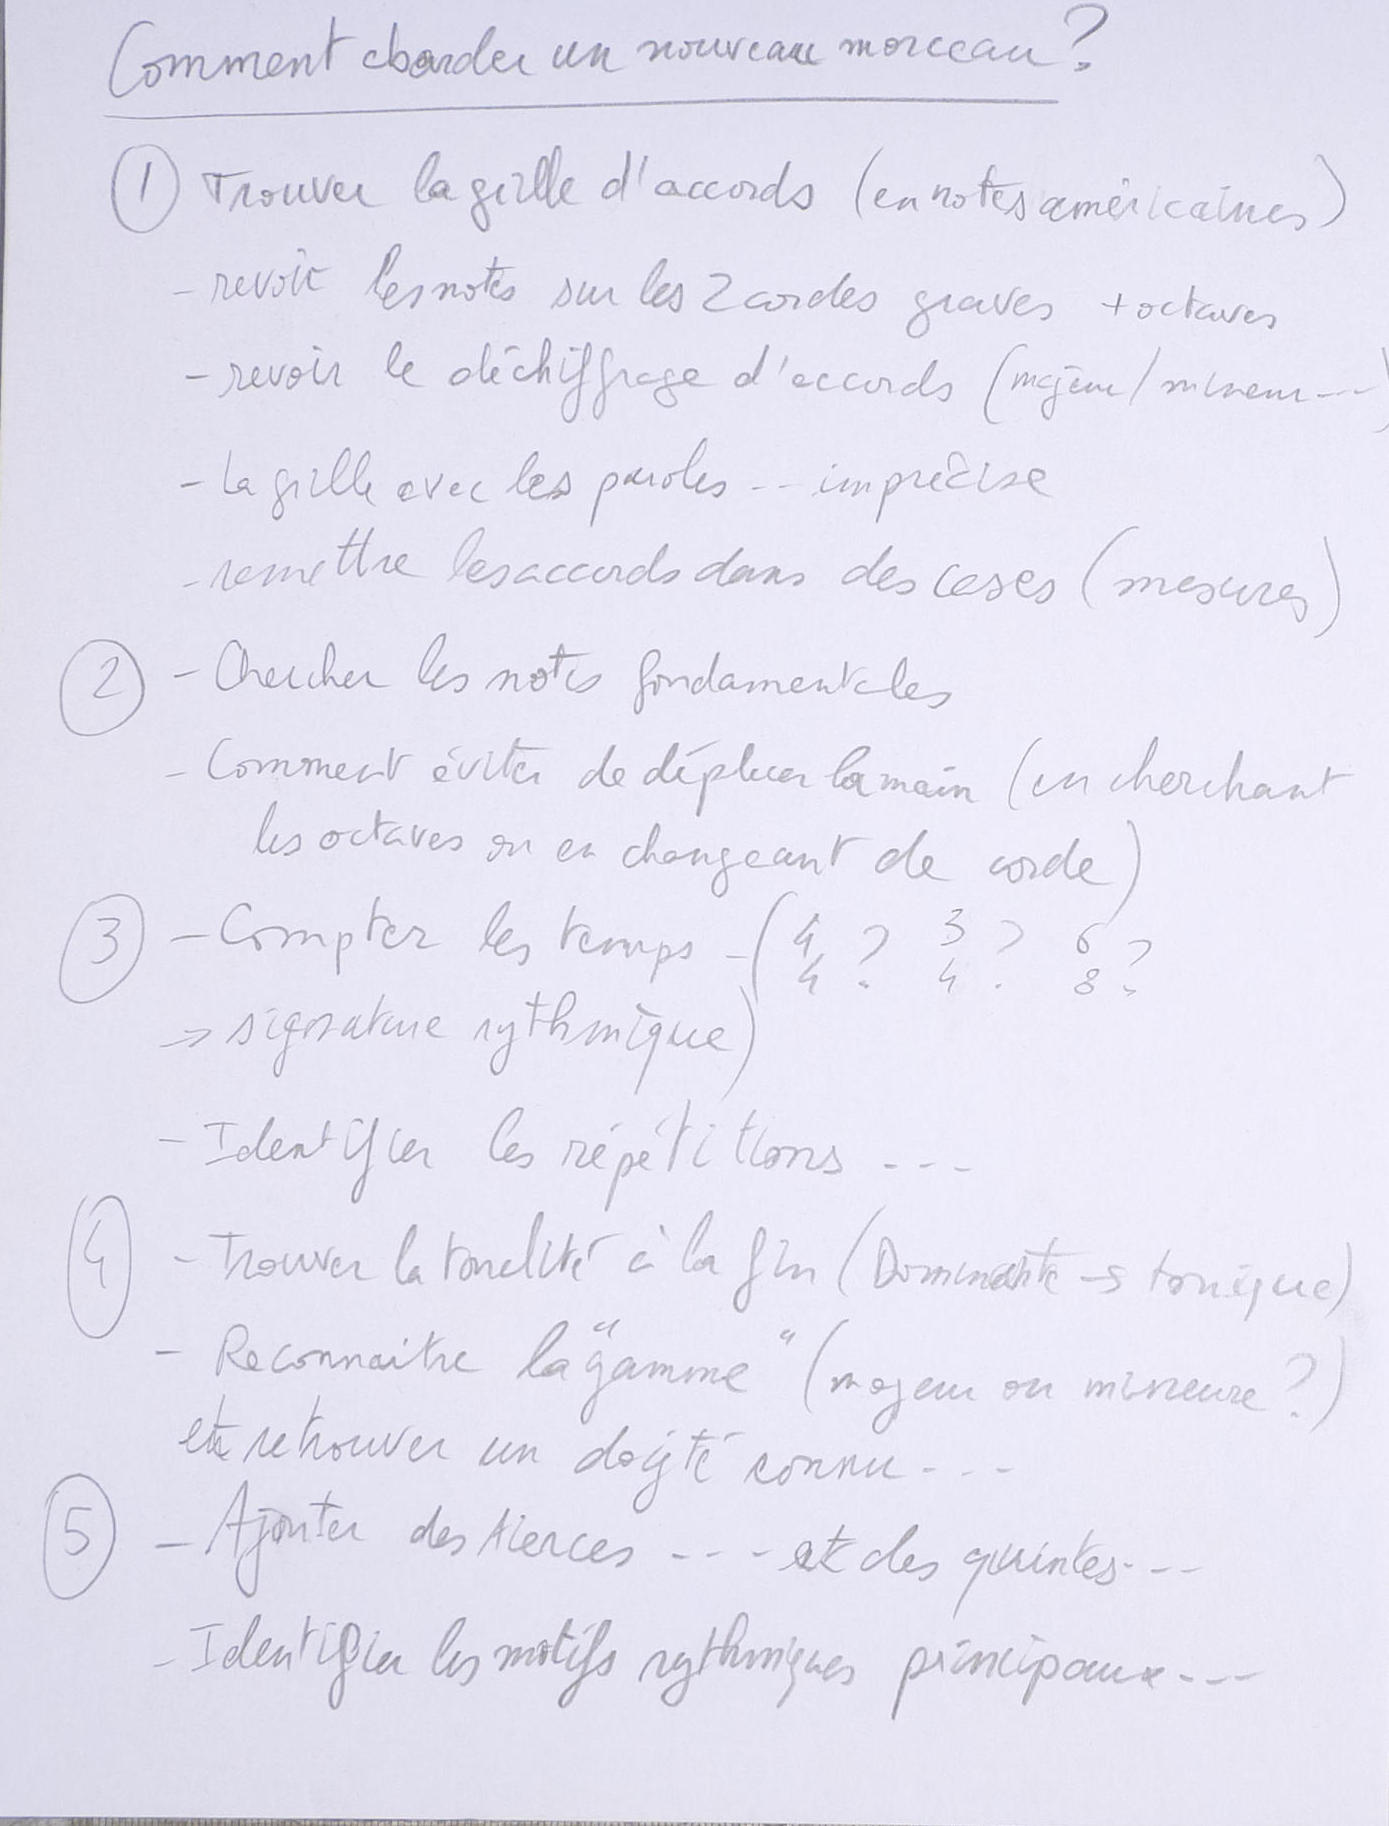 Comment aborder un nouveau morceau ?
① Trouver la grille d'accords (en notes américaines)
- revoir les notes sur les 2 cordes graves + octaves
- revoir le déchiffrage d'accords (majeur/mineur---)
- La grille avec les paroles -- imprécise
- remettre les accords dans des cases (mesures)
② - Chercher les notes fondamentales
- Comment éviter de déplacer la main (en cherchant
les octaves ou en changeant de corde)
③ - Compter les temps - (4/4 ? 3/4 ? 6/8 ?
→ signature rythmique)
- Identifier les répétitions ---
④ - Trouver la tonalité à la fin (Dominante → tonique)
- Reconnaitre la "gamme" (majeur ou mineure ?)
et retrouver un doigté connu ---
⑤ - Ajouter des tierces --- et des quintes ---
- Identifier les motifs rythmiques principaux ---